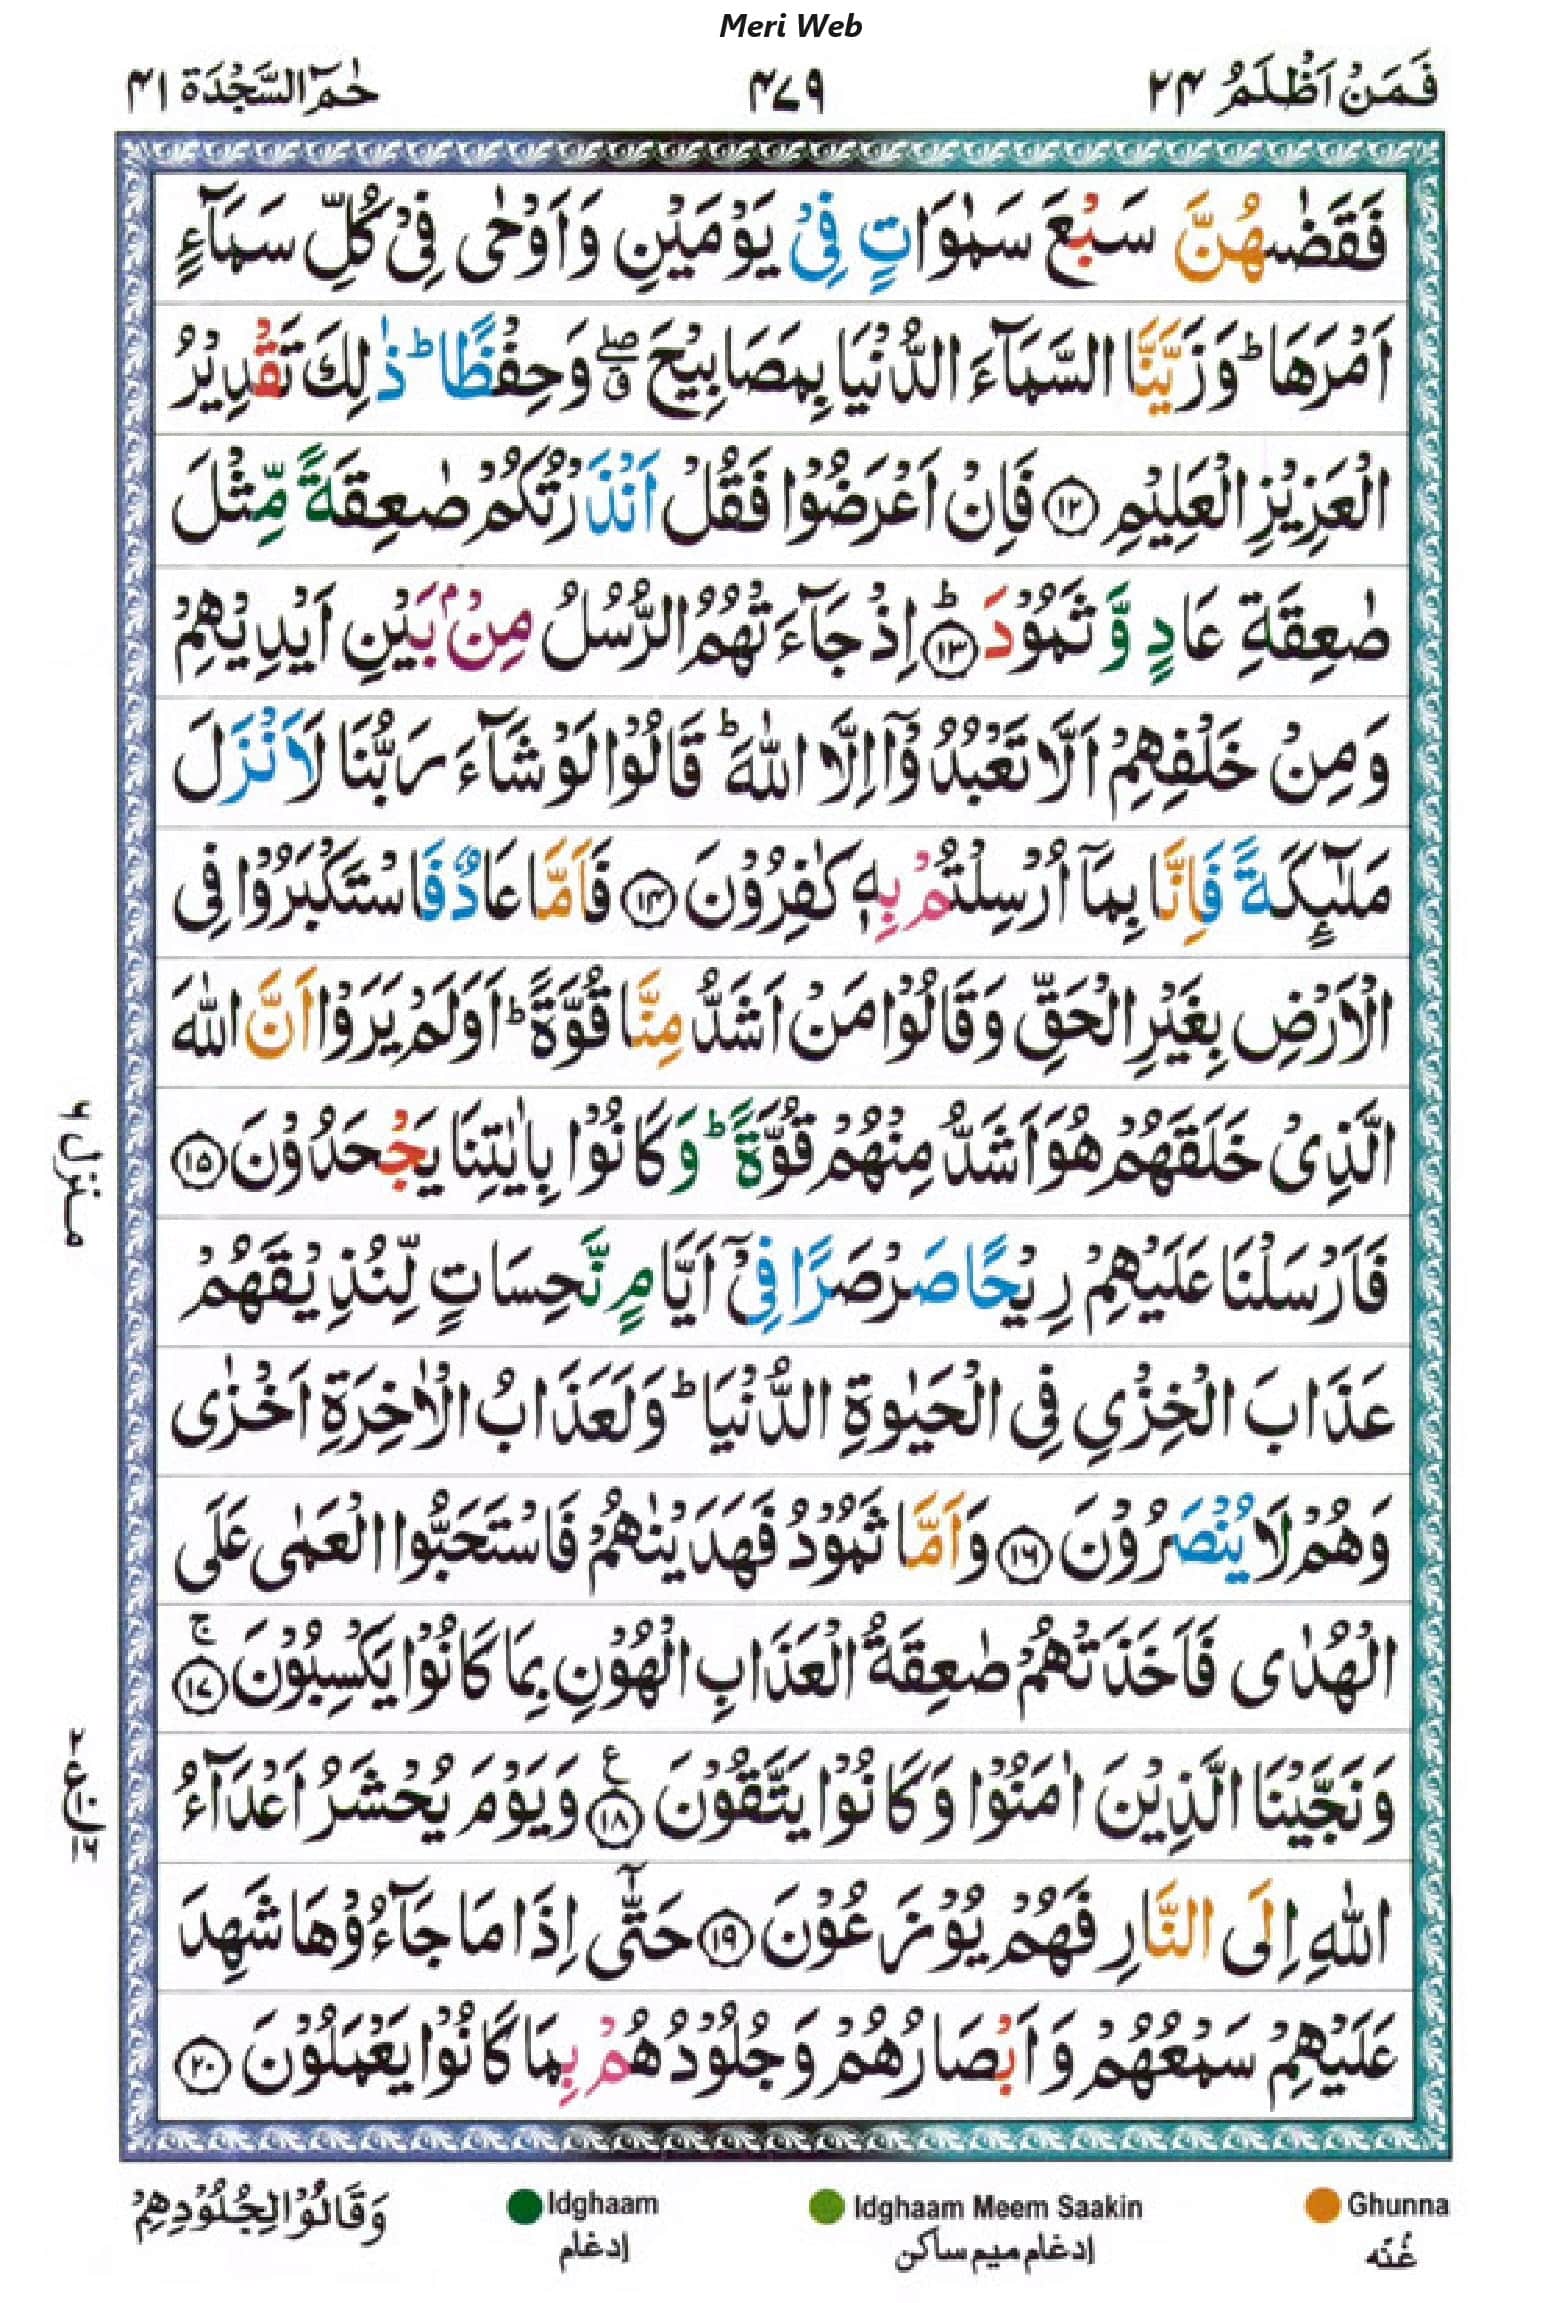 Meri Web
فَمَنْ اَظْلَمُ ٢٤
٤٧٩
حٰمٓ السَّجْدَة ٤١
فَقَضٰىهُنَّ سَبْعَ سَمٰوَاتٍ فِیْ یَوْمَیْنِ وَاَوْحٰی فِیْ كُلِّ سَمَآءٍ
اَمْرَهَا ؕ وَزَیَّنَّا السَّمَآءَ الدُّنْیَا بِمَصَابِیْحَ ۖۗ وَحِفْظًا ؕ ذٰلِكَ تَقْدِیْرُ
الْعَزِیْزِ الْعَلِیْمِ ﴿١٢﴾ فَاِنْ اَعْرَضُوْا فَقُلْ اَنْذَرْتُكُمْ صٰعِقَةً مِّثْلَ
صٰعِقَةِ عَادٍ وَّثَمُوْدَ ﴿١٣﴾ؕ اِذْ جَآءَتْهُمُ الرُّسُلُ مِنْۢ بَیْنِ اَیْدِیْهِمْ
وَمِنْ خَلْفِهِمْ اَلَّا تَعْبُدُوْۤا اِلَّا اللّٰهَ ؕ قَالُوْا لَوْ شَآءَ رَبُّنَا لَاَنْزَلَ
مَلٰٓىِٕكَةً فَاِنَّا بِمَاۤ اُرْسِلْتُمْ بِهٖ كٰفِرُوْنَ ﴿١٤﴾ فَاَمَّا عَادٌ فَاسْتَكْبَرُوْا فِی
الْاَرْضِ بِغَیْرِ الْحَقِّ وَقَالُوْا مَنْ اَشَدُّ مِنَّا قُوَّةً ؕ اَوَلَمْ یَرَوْا اَنَّ اللّٰهَ
الَّذِیْ خَلَقَهُمْ هُوَ اَشَدُّ مِنْهُمْ قُوَّةً ؕ وَكَانُوْا بِاٰیٰتِنَا یَجْحَدُوْنَ ﴿١٥﴾
فَاَرْسَلْنَا عَلَیْهِمْ رِیْحًا صَرْصَرًا فِیْۤ اَیَّامٍ نَّحِسَاتٍ لِّنُذِیْقَهُمْ
عَذَابَ الْخِزْیِ فِی الْحَیٰوةِ الدُّنْیَا ؕ وَلَعَذَابُ الْاٰخِرَةِ اَخْزٰی
وَهُمْ لَا یُنْصَرُوْنَ ﴿١٦﴾ وَاَمَّا ثَمُوْدُ فَهَدَیْنٰهُمْ فَاسْتَحَبُّوا الْعَمٰی عَلَی
الْهُدٰی فَاَخَذَتْهُمْ صٰعِقَةُ الْعَذَابِ الْهُوْنِ بِمَا كَانُوْا یَكْسِبُوْنَ ﴿١٧﴾ۚ
وَنَجَّیْنَا الَّذِیْنَ اٰمَنُوْا وَكَانُوْا یَتَّقُوْنَ ﴿١٨﴾ ع وَیَوْمَ یُحْشَرُ اَعْدَآءُ
اللّٰهِ اِلَی النَّارِ فَهُمْ یُوْزَعُوْنَ ﴿١٩﴾ حَتّٰۤی اِذَا مَا جَآءُوْهَا شَهِدَ
عَلَیْهِمْ سَمْعُهُمْ وَاَبْصَارُهُمْ وَجُلُوْدُهُمْ بِمَا كَانُوْا یَعْمَلُوْنَ ﴿٢٠﴾
منزل ٦
٢ ع ١٦
وَقَالُوْا لِجُلُوْدِهِمْ
Idghaam
ادغام
Idghaam Meem Saakin
ادغام میم ساکن
Ghunna
غُنّه